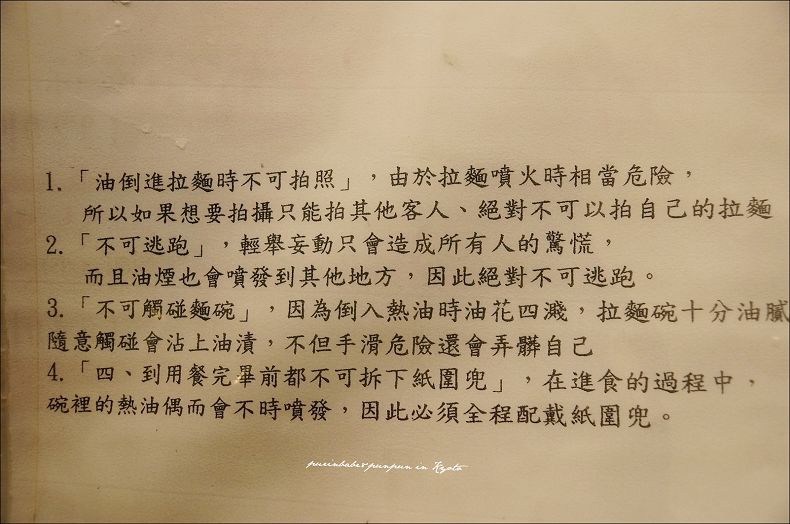 1.「油倒進拉麵時不可拍照」，由於拉麵噴火時相當危險，
所以如果想要拍攝只能拍其他客人、絕對不可以拍自己的拉麵
2.「不可逃跑」，輕舉妄動只會造成所有人的驚慌，
而且油煙也會噴發到其他地方，因此絕對不可逃跑。
3.「不可觸碰麵碗」，因為倒入熱油時油花四濺，拉麵碗十分油膩
隨意觸碰會沾上油漬，不但手滑危險還會弄髒自己
4.「四、到用餐完畢前都不可拆下紙圍兜」，在進食的過程中，
碗裡的熱油偶而會不時噴發，因此必須全程配戴紙圍兜。
purinbaber punpun in Kyoto